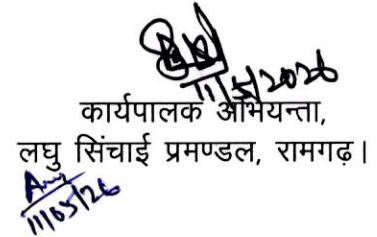 11/5/2026
कार्यपालक अभियन्ता,
लघु सिंचाई प्रमण्डल, रामगढ़।
11/05/26